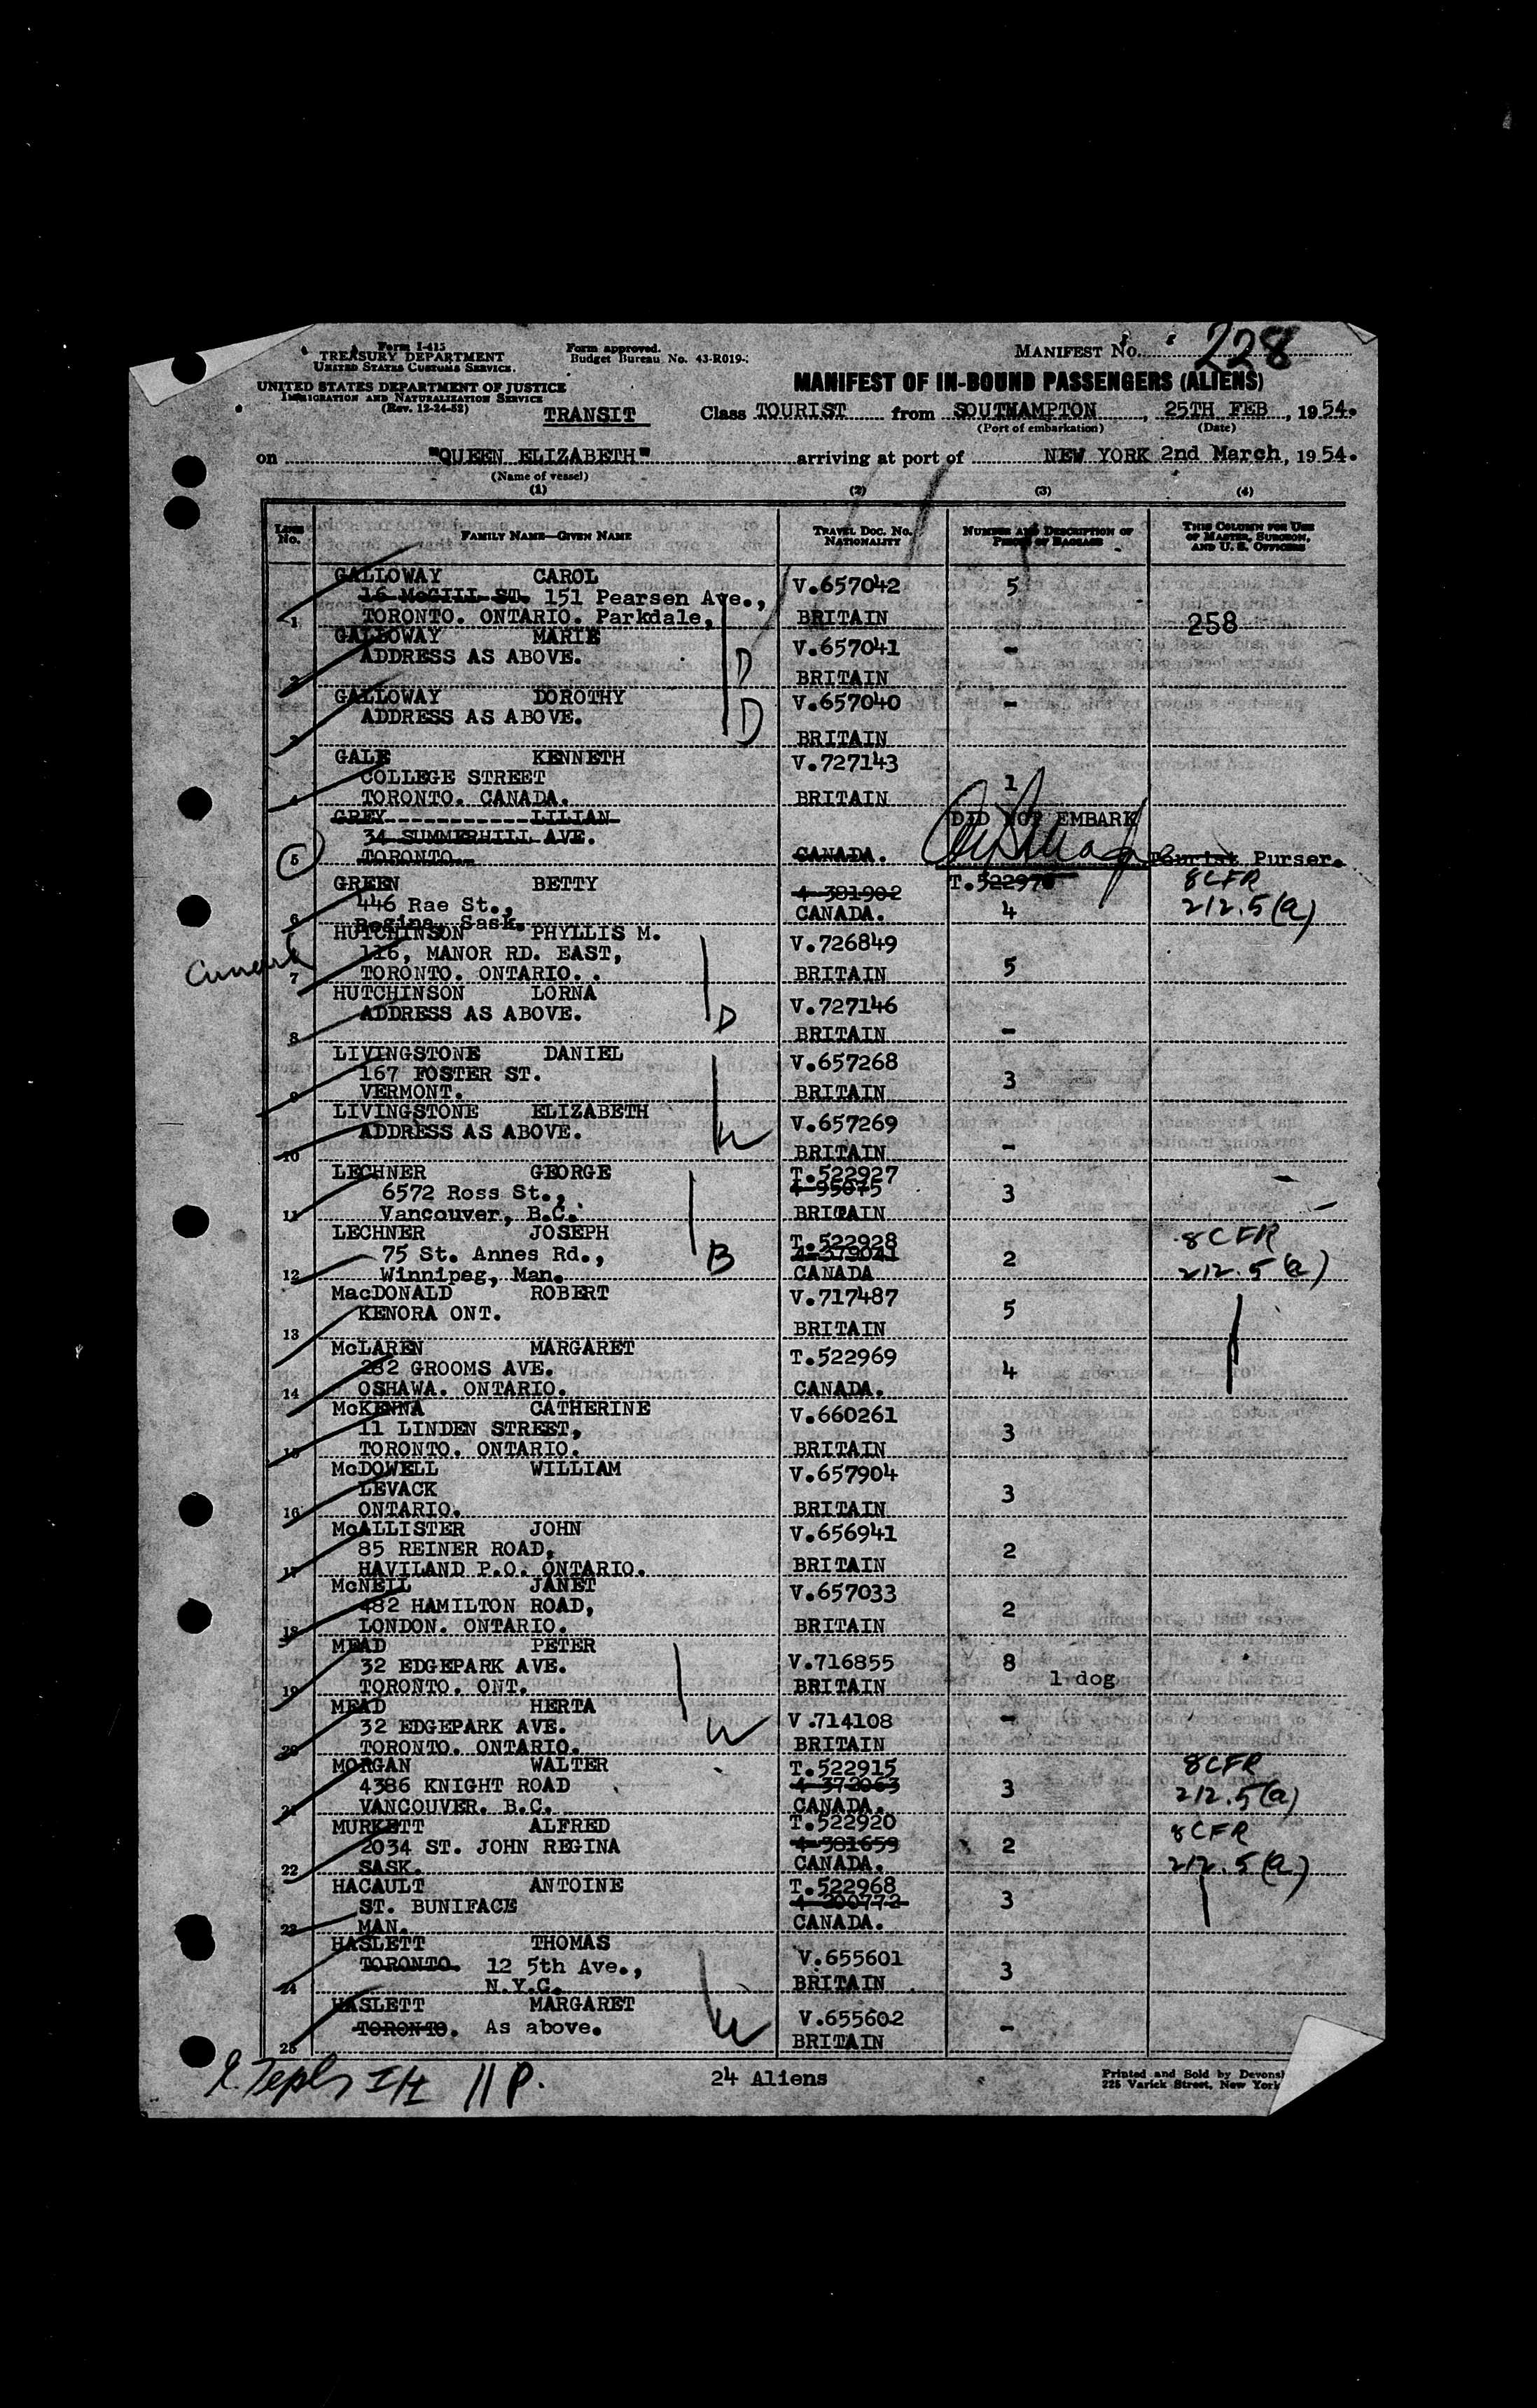 Form I-415
TREASURY DEPARTMENT
UNITED STATES CUSTOMS SERVICE.
UNITED STATES DEPARTMENT OF JUSTICE
IMMIGRATION AND NATURALIZATION SERVICE
(Rev. 12-24-52)
Form approved.
Budget Bureau No. 43-R019-
MANIFEST No. 228
MANIFEST OF IN-BOUND PASSENGERS (ALIENS)
TRANSIT Class TOURIST from SOUTHAMPTON, 25TH FEB, 1954.
(Port of embarkation) (Date)
on "QUEEN ELIZABETH" arriving at port of NEW YORK 2nd March, 1954.
(Name of vessel)
(1) (2) (3) (4)
LINE No. FAMILY NAME—GIVEN NAME TRAVEL DOC. NO. NATIONALITY NUMBER AND DESCRIPTION OF PIECES OF BAGGAGE THIS COLUMN FOR USE OF MASTER, SURGEON, AND U. S. OFFICERS
GALLOWAY CAROL V.657042 5
16 McGILL ST. 151 Pearsen Ave.,
1 TORONTO. ONTARIO. Parkdale, BRITAIN 258
GALLOWAY MARIE V.657041 -
ADDRESS AS ABOVE. D
2 BRITAIN
GALLOWAY DOROTHY V.657040 -
ADDRESS AS ABOVE. D
3 BRITAIN
GALE KENNETH V.727143
COLLEGE STREET 1
4 TORONTO. CANADA. BRITAIN
GREY LILIAN DID NOT EMBARK
34 SUMMERHILL AVE.
5 TORONTO CANADA. Tourist Purser.
GREEN BETTY 4-381902 T.522976 8CFR
446 Rae St., CANADA. 4 212.5(a)
6 Regina, Sask.
HUTCHINSON PHYLLIS M. V.726849
116, MANOR RD. EAST,
Cunard 7 TORONTO. ONTARIO. . BRITAIN 5
HUTCHINSON LORNA V.727146
ADDRESS AS ABOVE. D
8 BRITAIN -
LIVINGSTONE DANIEL V.657268
167 FOSTER ST. 3
9 VERMONT. BRITAIN
LIVINGSTONE ELIZABETH V.657269
ADDRESS AS ABOVE. W -
10 BRITAIN
LECHNER GEORGE T.522927
6572 Ross St., 4-95075 3
11 Vancouver, B.C. BRITAIN
LECHNER JOSEPH T.522928 8CFR
75 St. Annes Rd., B 4-379041 2
12 Winnipeg, Man. CANADA 212.5(a)
MacDONALD ROBERT V.717487
KENORA ONT. 5
13 BRITAIN
McLAREN MARGARET T.522969
282 GROOMS AVE. 4
14 OSHAWA. ONTARIO. CANADA.
McKENNA CATHERINE V.660261
11 LINDEN STREET, 3
15 TORONTO. ONTARIO. BRITAIN
McDOWELL WILLIAM V.657904
LEVACK 3
16 ONTARIO. BRITAIN
McALLISTER JOHN V.656941
85 REINER ROAD, 2
17 HAVILAND P.O. ONTARIO. BRITAIN
McNEIL JANET V.657033
482 HAMILTON ROAD, 2
18 LONDON. ONTARIO. BRITAIN
MEAD PETER
32 EDGEPARK AVE. V.716855 8
19 TORONTO. ONT. BRITAIN 1 dog
MEAD HERTA -
32 EDGEPARK AVE. W V.714108
20 TORONTO. ONTARIO. BRITAIN
MORGAN WALTER T.522915 8CFR
4386 KNIGHT ROAD 4-372063 3
21 VANCOUVER. B.C. CANADA. 212.5(a)
MURKETT ALFRED T.522920 8CFR
2034 ST. JOHN REGINA 4-381659 2
22 SASK. CANADA. 212.5(a)
HACAULT ANTOINE T.522968
ST. BUNIFACE 4-200772 3
23 MAN. CANADA.
HASLETT THOMAS
TORONTO. 12 5th Ave., V.655601 3
24 N.Y.C. BRITAIN
HASLETT MARGARET V.655602
TORONTO. As above. W -
25 BRITAIN
11 P. 24 Aliens
Printed and Sold by
225 Varick Street, New York